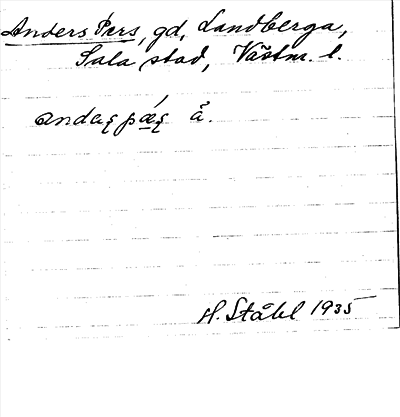 Anders Pers, gd, Landberga,
Sala stad, Västm. l.
å.
H. Ståhl 1935